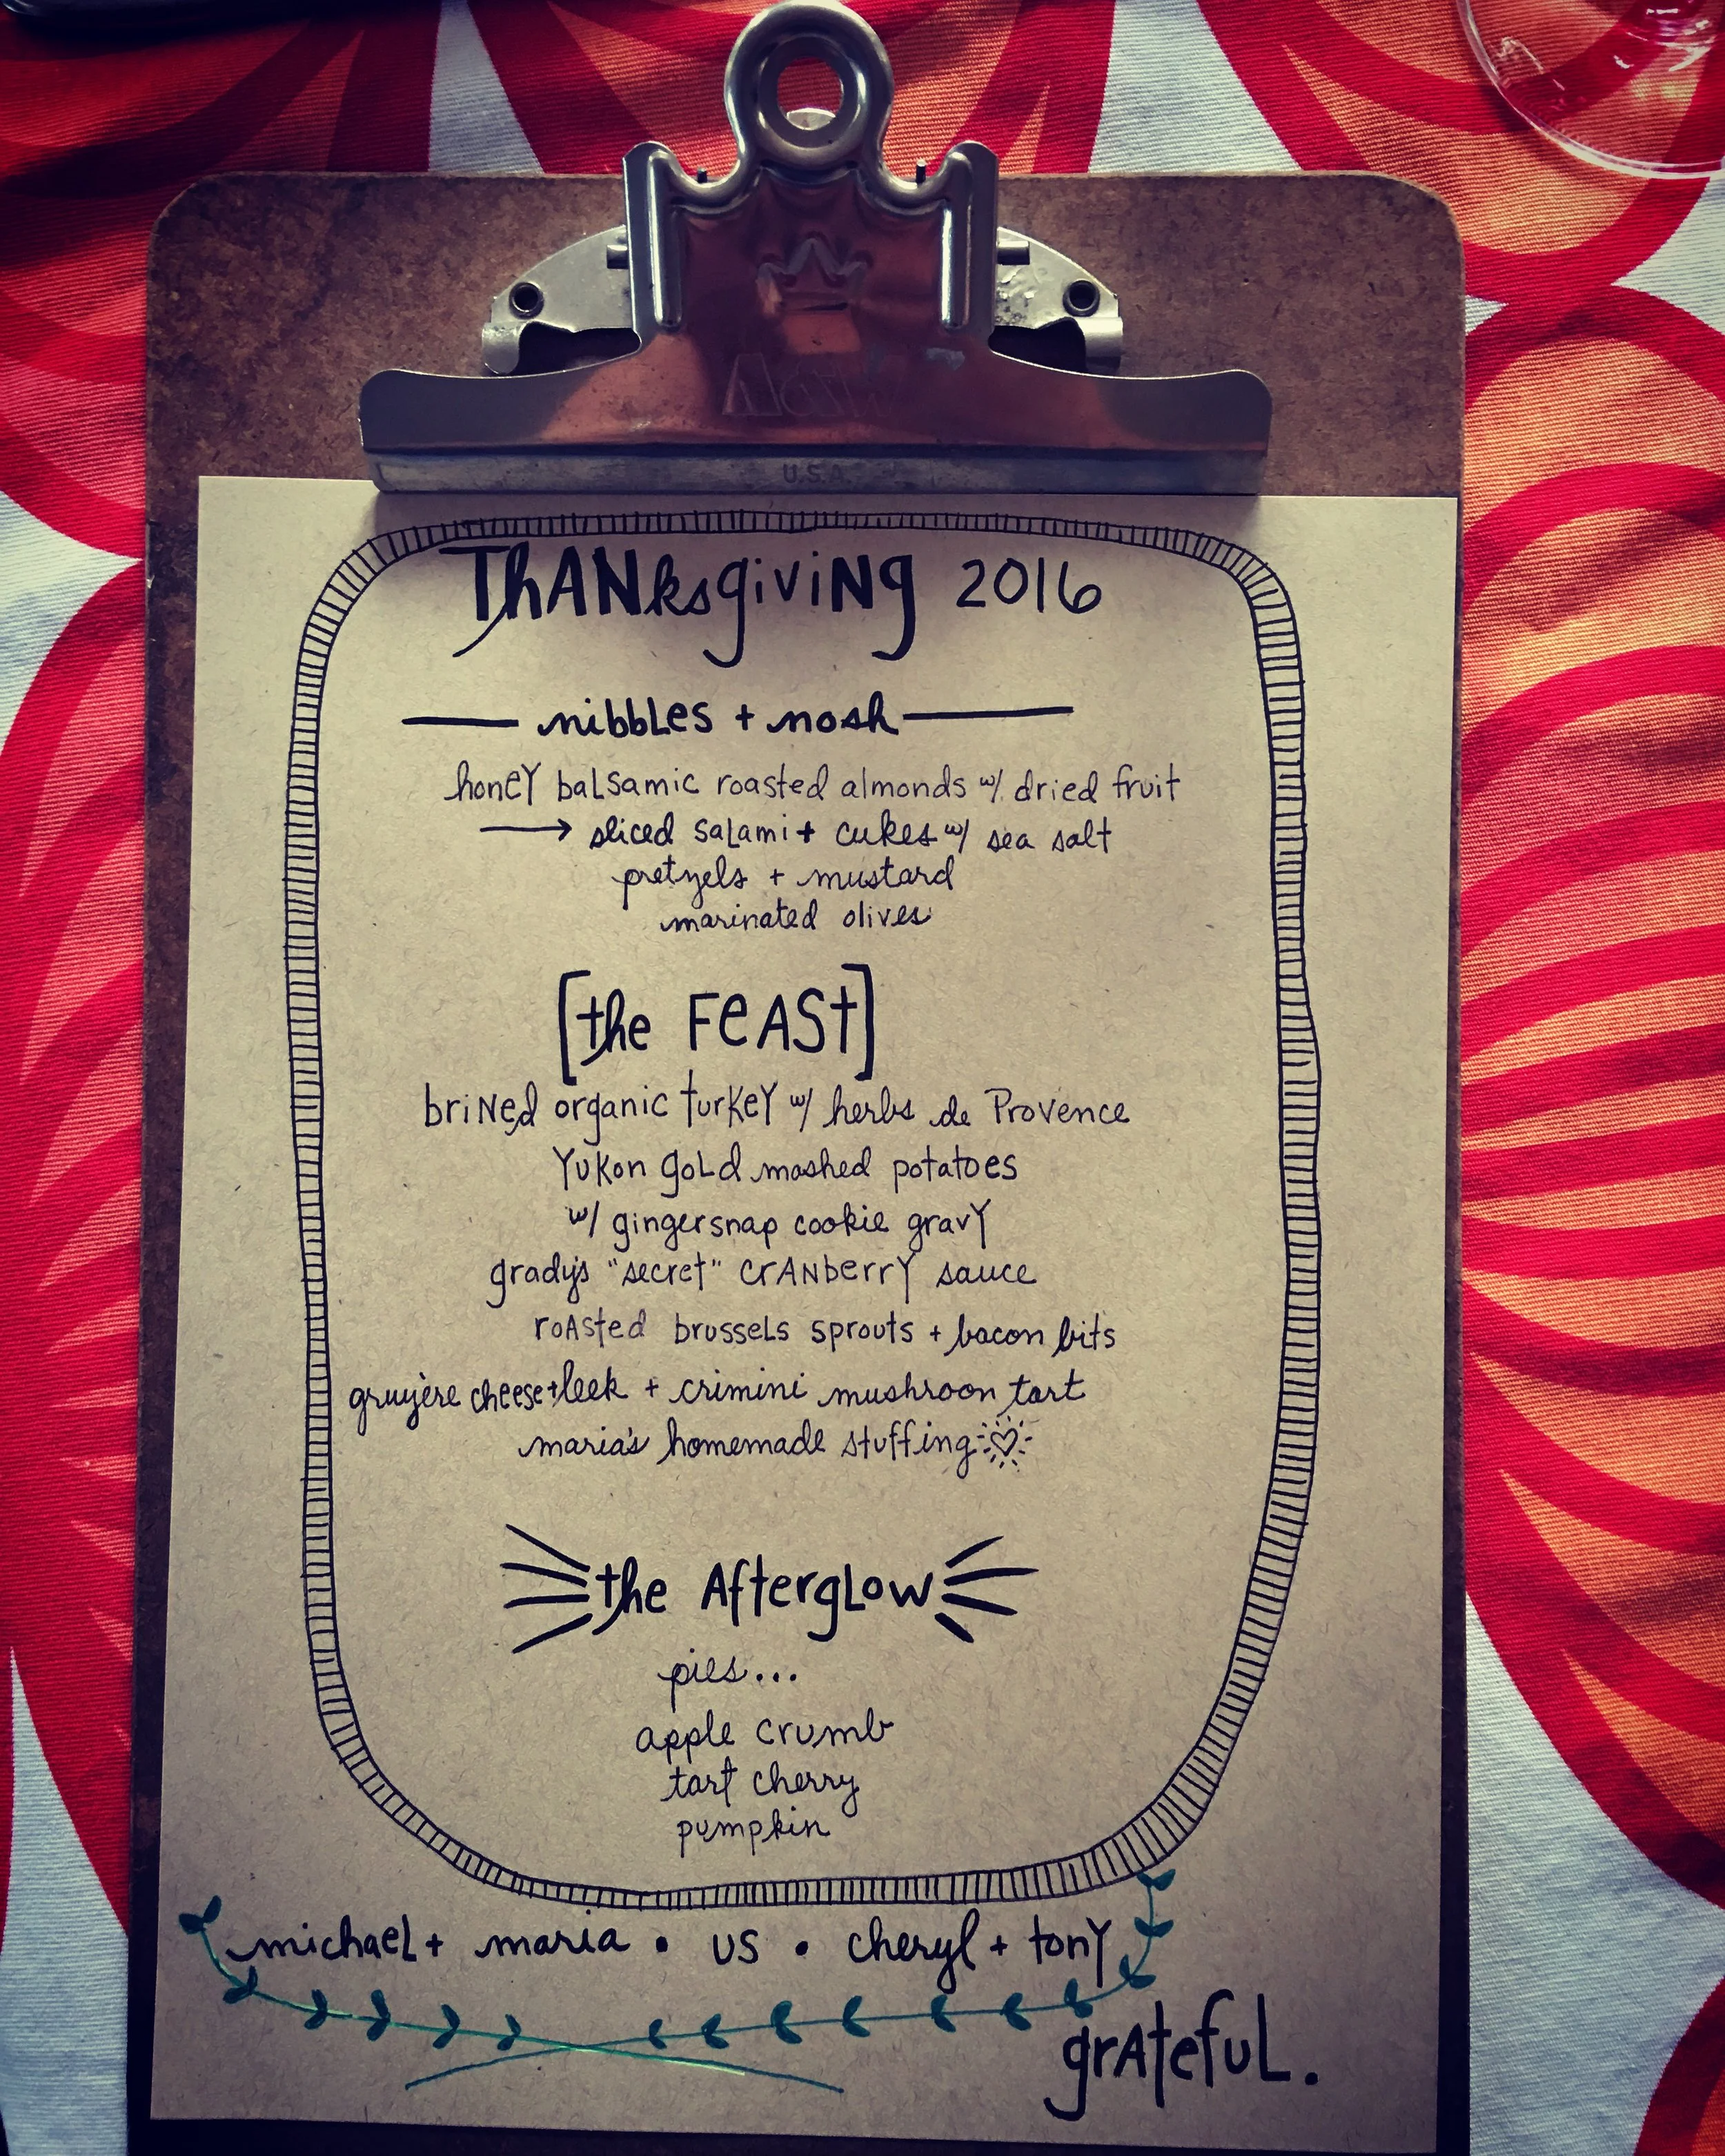 U.S.A.
ThANksgiviNg 2016
nibbles + nosh
honey balsamic roasted almonds w/ dried fruit
→ sliced salami + cukes w/ sea salt
pretzels + mustard
marinated olives
[the FeASt]
briNed organic turkey w/ herbs de Provence
Yukon gold mashed potatoes
w/ gingersnap cookie gravy
grady's "secret" crANberry sauce
roAsted brussels sprouts + bacon bits
gruyère cheese + leek + crimini mushroon tart
maria's homemade stuffing
the Afterglow
pies...
apple crumb
tart cherry
pumpkin
michael + maria • us • cheryl + tony
grAteful.